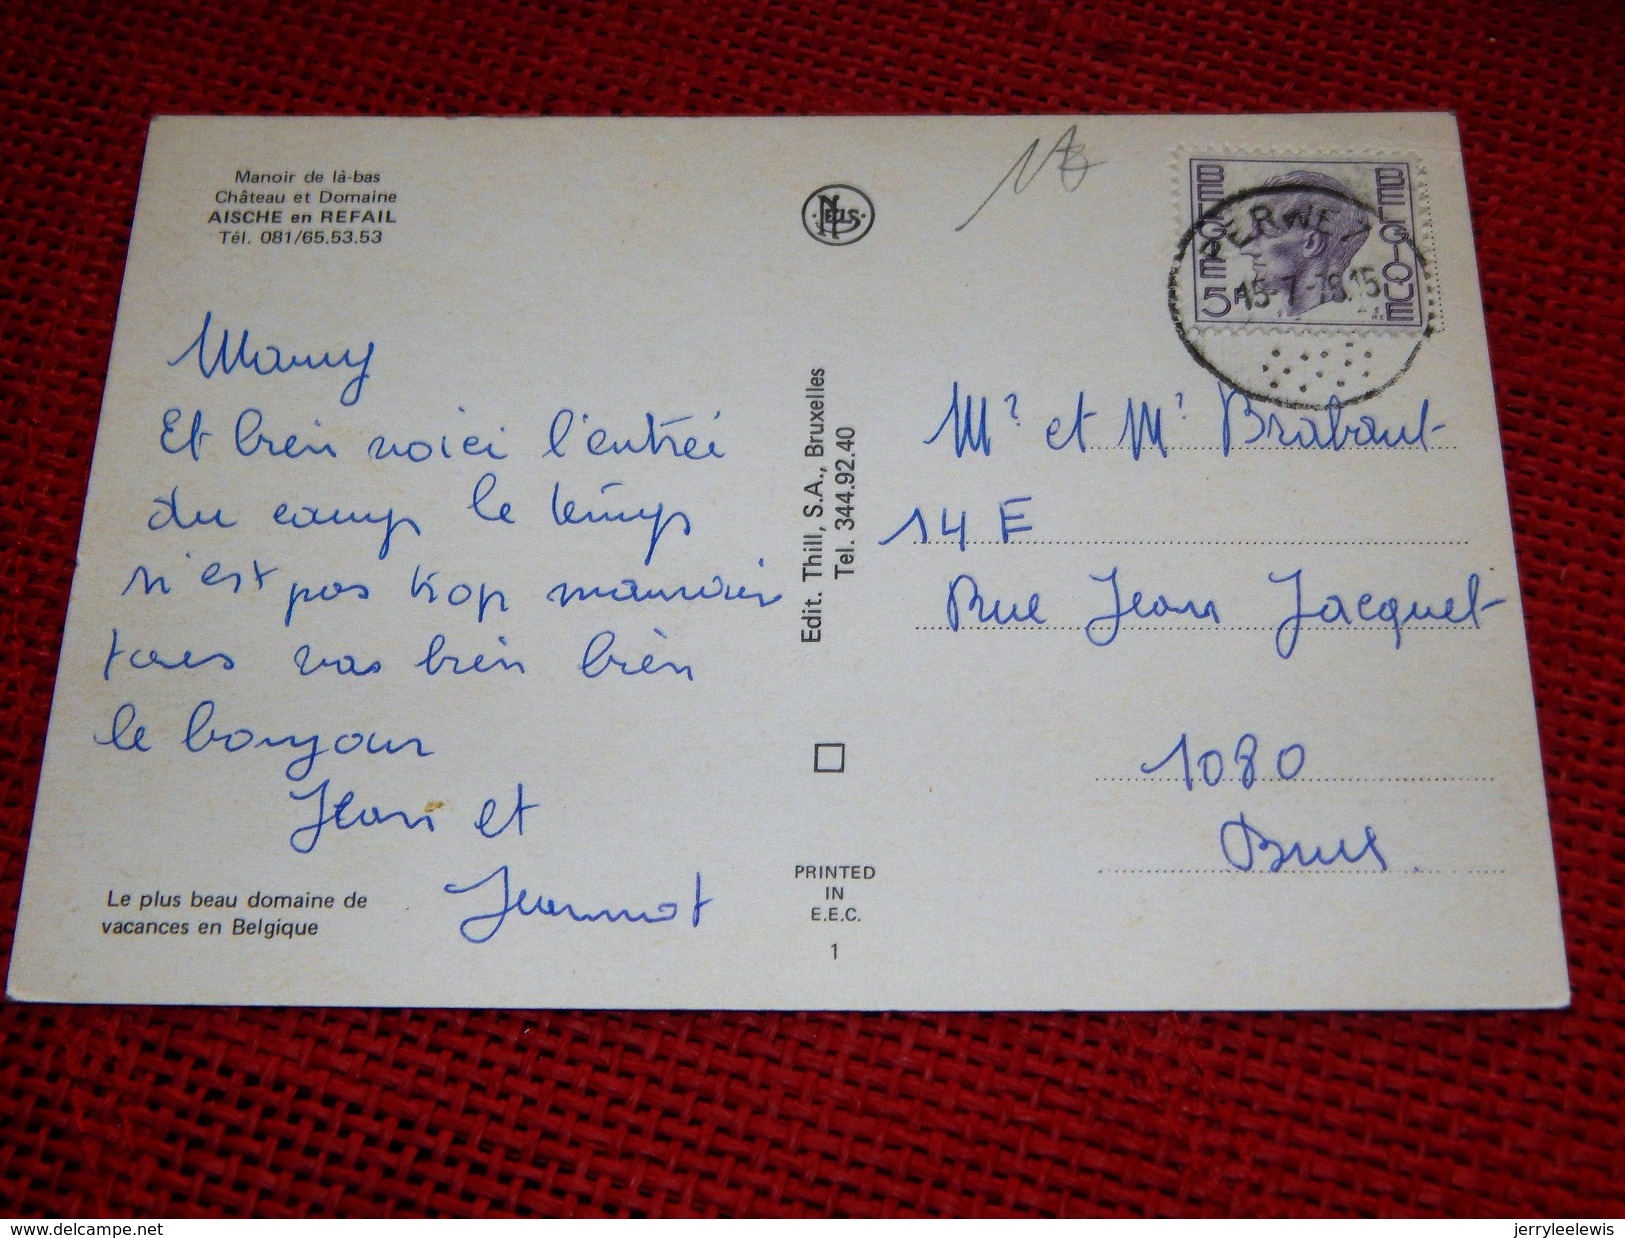 Manoir de là-bas
Château et Domaine
AISCHE en REFAIL
Tél. 081/65.53.53
NELS
BELGIË 5F
BELGIQUE
PERWEZ
15-7-
15
Mamy
Et bien voici l'entrée
du camp le temps
n'est pas trop mauvais
tous vas bien bien
le bonjour
Jean et
Jeannot
Le plus beau domaine de
vacances en Belgique
Edit. Thill, S.A., Bruxelles
Tel. 344.92.40
PRINTED
IN
E.E.C.
1
Mr et Mr Brabant
14 E
Rue Jean Jacquet
1080
Brux.
www.delcampe.net
jerryleelewis